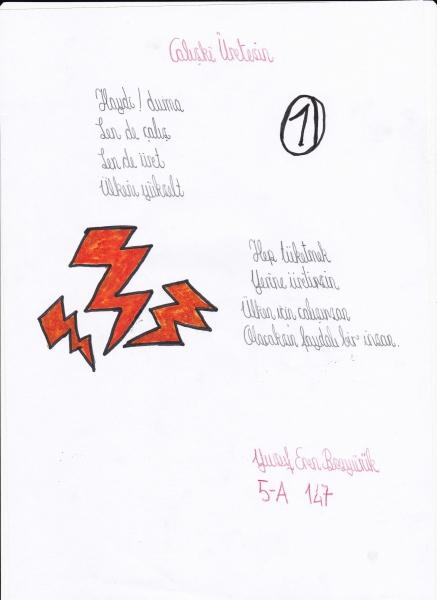 Çalışki Üretesin
1
Haydi! durma
Sen de çalış
Sen de üret
Ülkeni yükselt
Hep tüketmek
Yerine üretirsin
Ülken için çalışırsan
Olacaksın faydalı bir insan.
Yusuf Eren
5-A 147